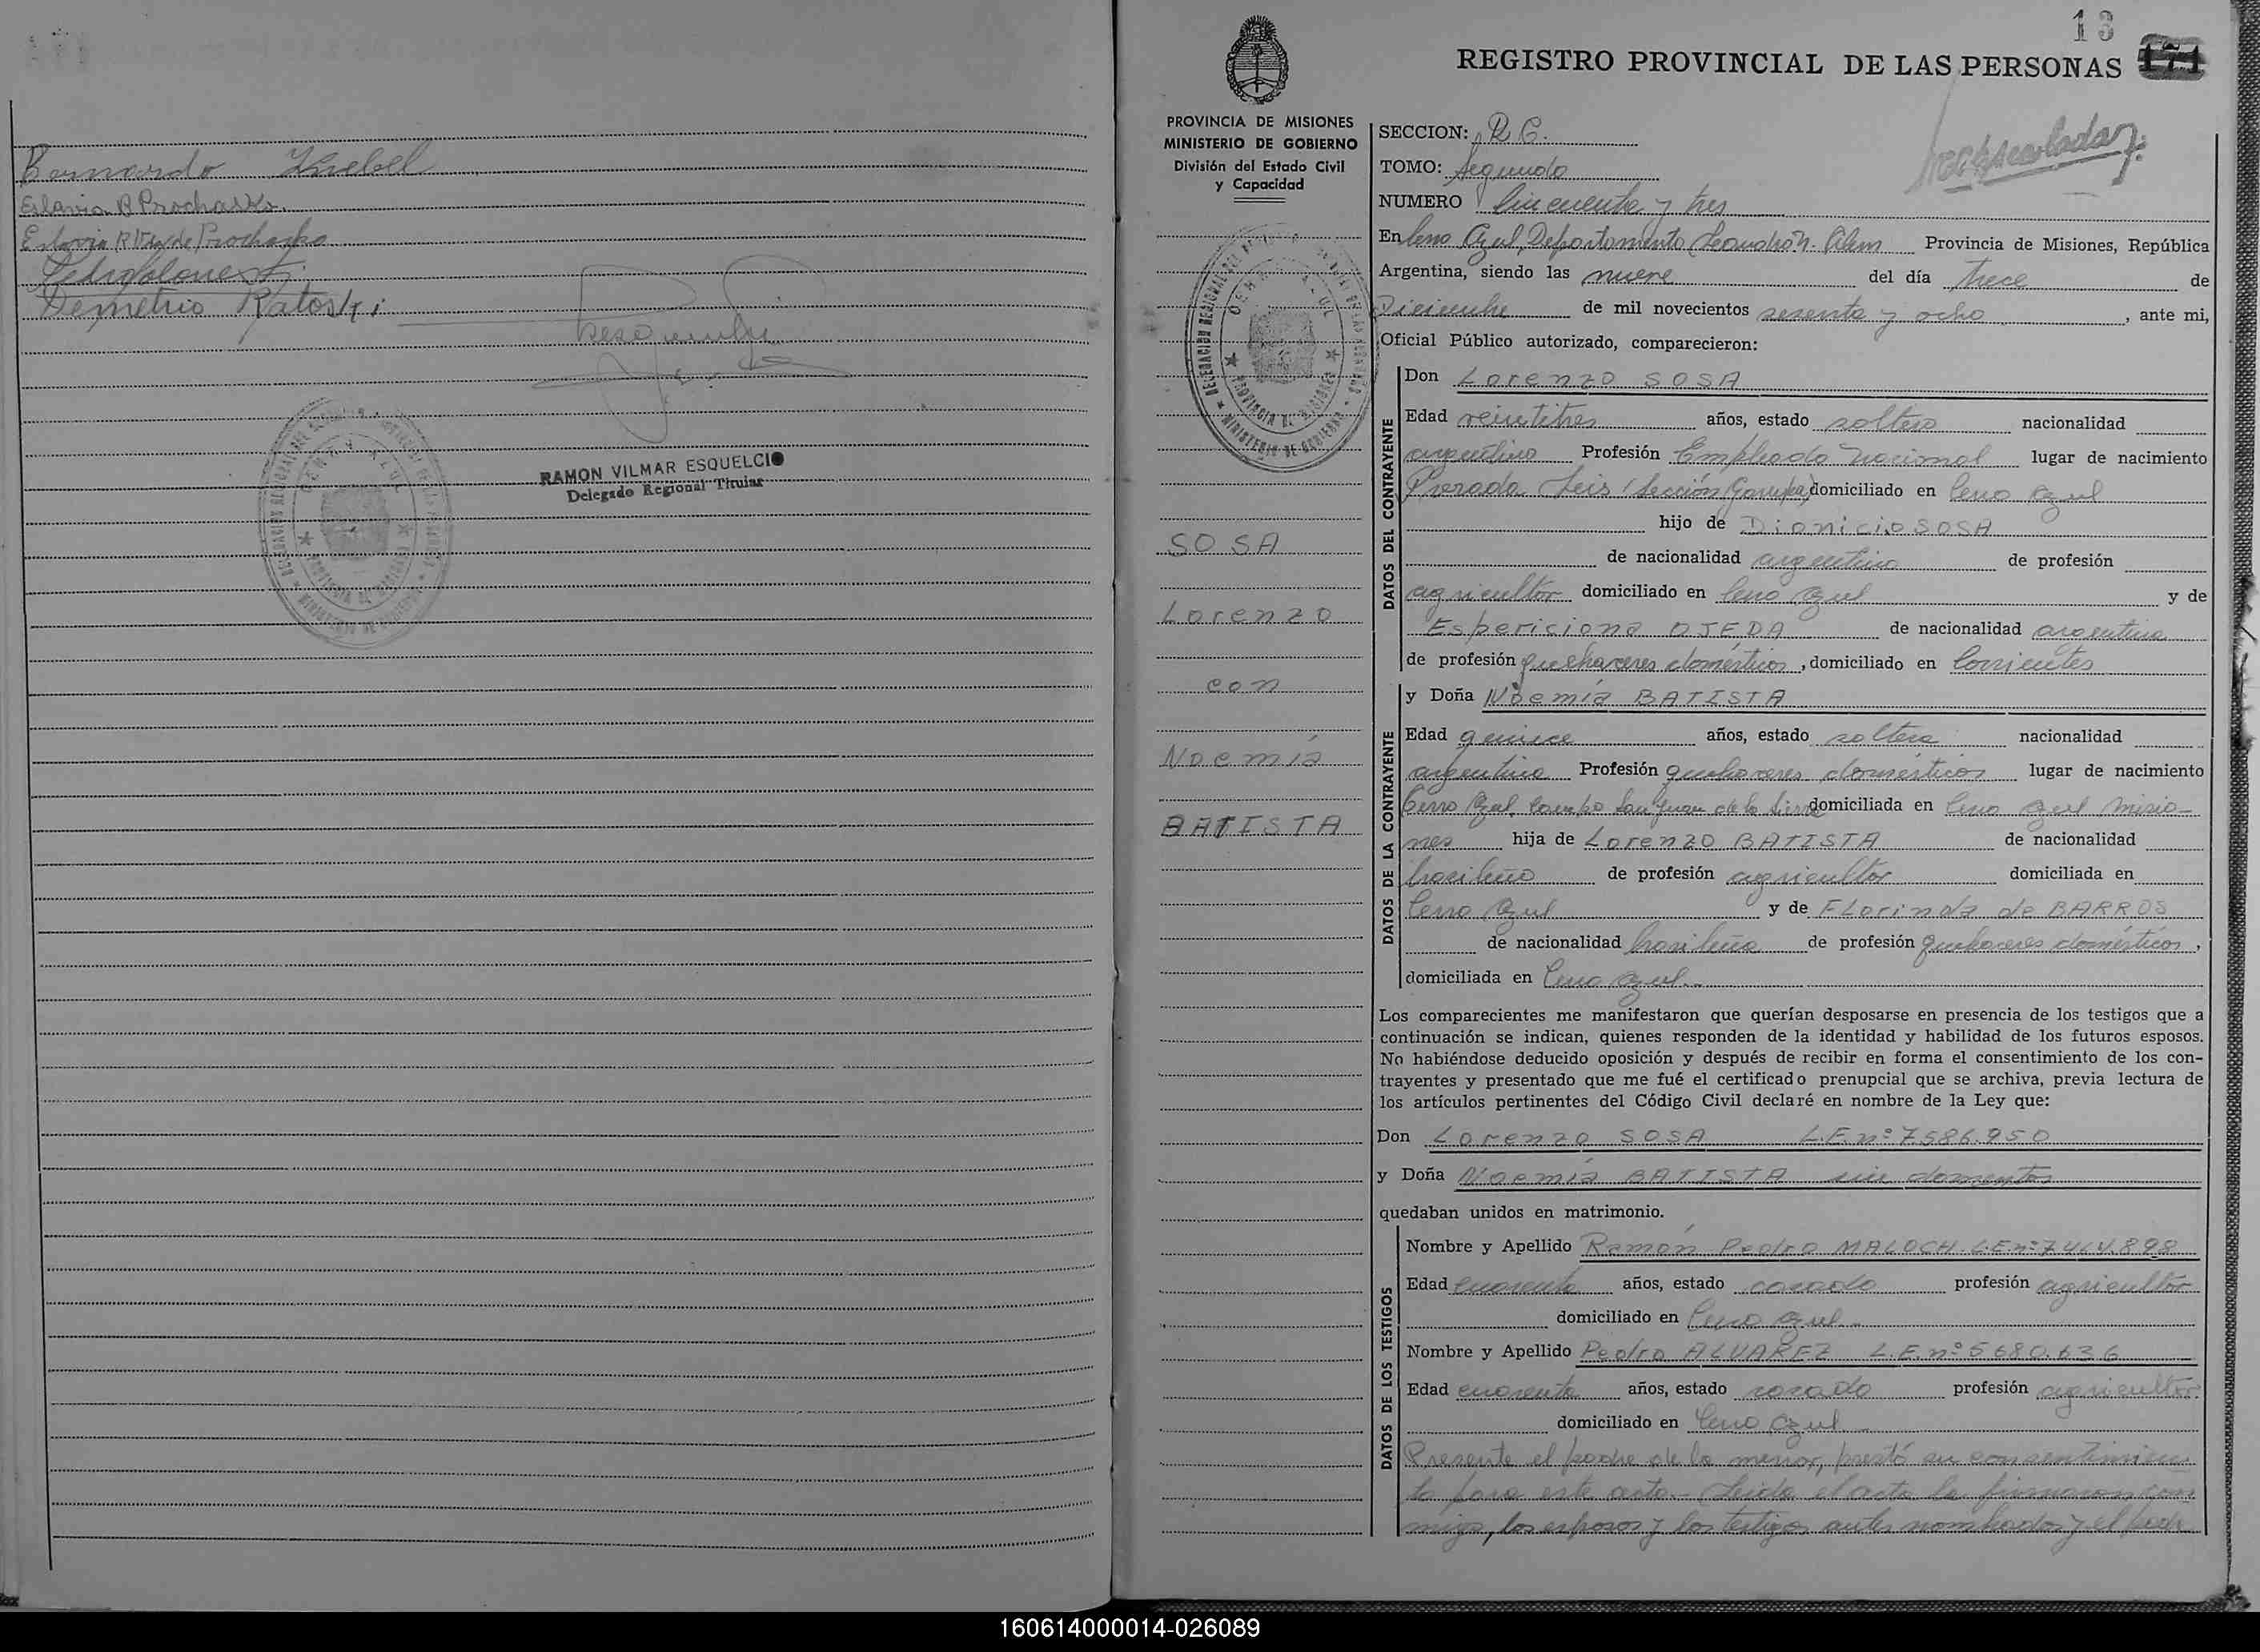 Bernardo Knebel
Eslavia R Prochasko
Eslavia R Vda de Prochasko
Demetrio Ratoski
RAMON VILMAR ESQUELCIO
Delegado Regional Titular
13
171
REGISTRO PROVINCIAL DE LAS PERSONAS
PROVINCIA DE MISIONES
MINISTERIO DE GOBIERNO
División del Estado Civil
y Capacidad
SOSA
Lorenzo
con
Noemia
BATISTA
SECCION: R.C.
TOMO: Segundo
NUMERO Cincuenta y tres
En Cerro Azul, Departamento Leandro N. Alem Provincia de Misiones, República
Argentina, siendo las nueve del día trece de
Diciembre de mil novecientos sesenta y ocho, ante mi,
Oficial Público autorizado, comparecieron:
DATOS DEL CONTRAYENTE
Don Lorenzo SOSA
Edad veintitres años, estado soltero nacionalidad
argentino Profesión Empleado Nacional lugar de nacimiento
Parada Leis (Sección Garupa) domiciliado en Cerro Azul
hijo de Dionicio SOSA
de nacionalidad argentino de profesión
agricultor domiciliado en Cerro Azul y de
Espericiona OJEDA de nacionalidad argentina
de profesión quehaceres domésticos, domiciliado en Corrientes
DATOS DE LA CONTRAYENTE
y Doña Noemia BATISTA
Edad quince años, estado soltera nacionalidad
argentina Profesión quehaceres domésticos lugar de nacimiento
Cerro Azul, Campo San Juan de la Sierra domiciliada en Cerro Azul Misio-
nes hija de Lorenzo BATISTA de nacionalidad
brasileño de profesión agricultor domiciliada en
Cerro Azul y de FLorinda de BARROS
de nacionalidad brasileña de profesión quehaceres domésticos,
domiciliada en Cerro Azul.-
Los comparecientes me manifestaron que querían desposarse en presencia de los testigos que a
continuación se indican, quienes responden de la identidad y habilidad de los futuros esposos.
No habiéndose deducido oposición y después de recibir en forma el consentimiento de los con-
trayentes y presentado que me fué el certificado prenupcial que se archiva, previa lectura de
los artículos pertinentes del Código Civil declaré en nombre de la Ley que:
Don Lorenzo SOSA L.E.nº 7.586.950
y Doña Noemia BATISTA sin domentos
quedaban unidos en matrimonio.
DATOS DE LOS TESTIGOS
Nombre y Apellido Ramón Pedro MALOCH L.E.nº 7.4 .898
Edad cuarenta años, estado casado profesión agricultor
domiciliado en Cerro Azul.-
Nombre y Apellido Pedro ALVAREZ L.E.nº 5680.636
Edad cuarenta años, estado casado profesión agricultor
domiciliado en Cerro Azul
Presente el padre de la menor, prestó su consentimien
to para este acto.- Leida el acta la firmaron con
migo, los esposos y los testigos antes nombrados y el padr
160614000014-026089